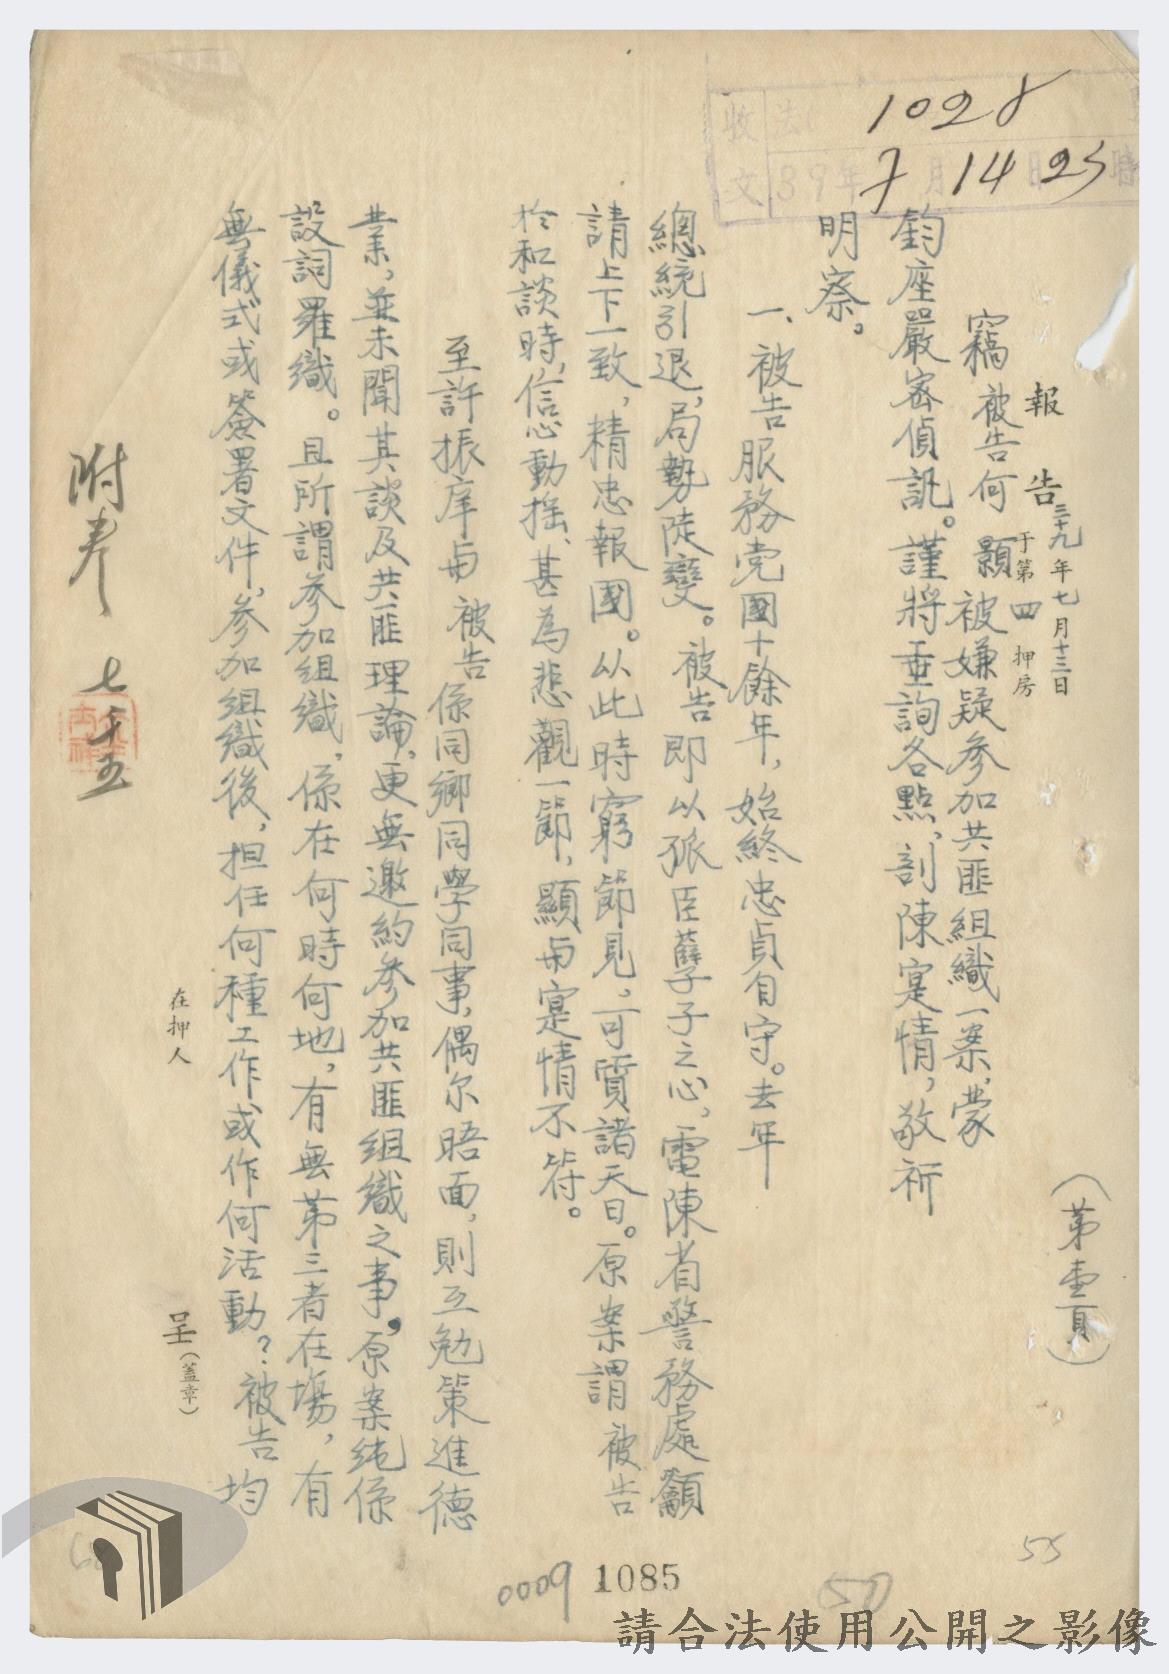 1028
收文
法
39年7月14日25時
(第壹頁)
報告 三十九年七月十三日 于第四押房
竊被告何顯被嫌疑參加共匪組織一案,蒙
鈞座嚴密偵訊。謹將垂詢各點,剖陳寔情,敬祈
明察。
一、被告服務党國十餘年,始終忠貞自守。去年
總統引退,局勢陡變。被告即以孤臣孽子之心,電陳省警務處籲
請上下一致,精忠報國。以此時窮節見,可質諸天日。原案謂被告
於和談時,信心動搖、甚為悲觀一節,顯與寔情不符。
至許振庠与被告係同鄉同學同事,偶尔晤面,則互勉策進德
業,並未聞其談及共匪理論,更無邀約參加共匪組織之事,原案純係
設詞羅織。且所謂參加組織,係在何時何地,有無第三者在場,有
無儀式或簽署文件,參加組織後,担任何種工作或作何活動?被告均
在押人 呈(蓋章)
附卷 七、十五
55
50
0009 1085
請合法使用公開之影像